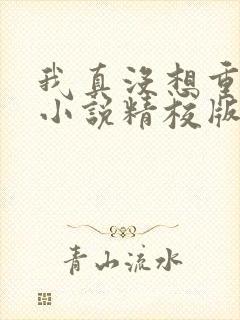 我真没想重
小说精校版
青山流水